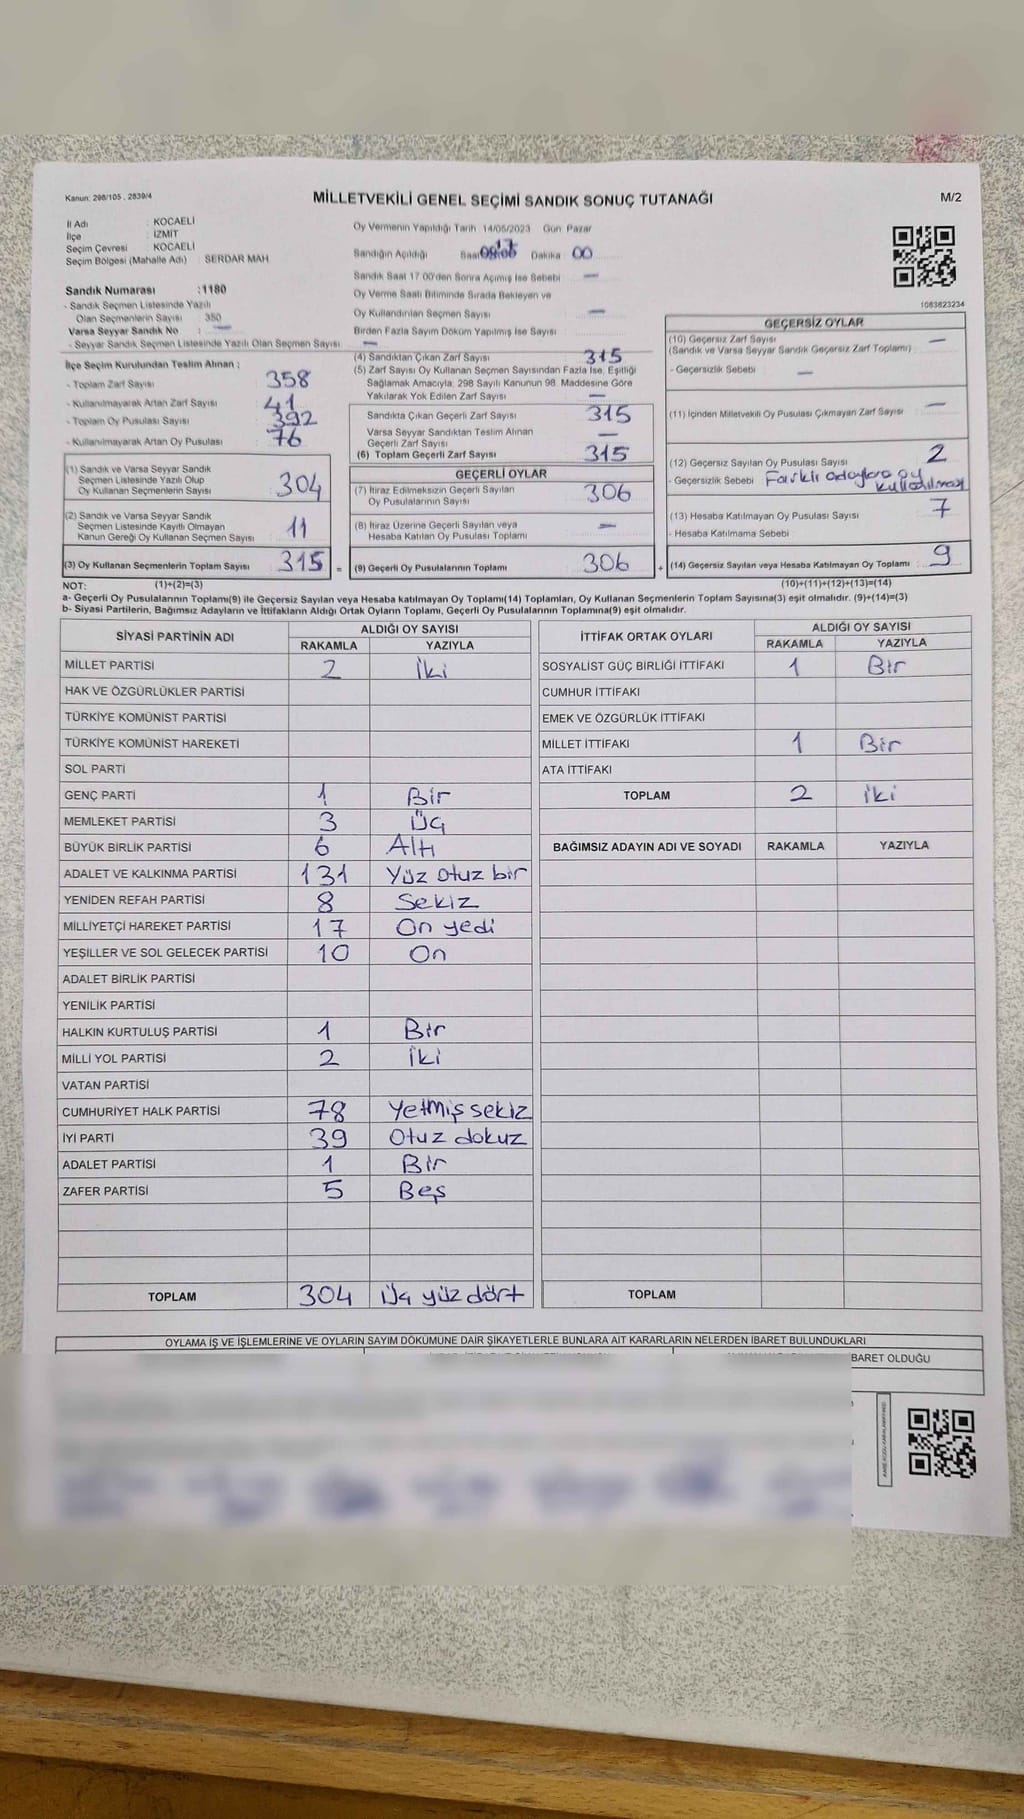 Kanun: 298/105 , 2839/4
MİLLETVEKİLİ GENEL SEÇİMİ SANDIK SONUÇ TUTANAĞI
M/2
İl Adı : KOCAELİ
İlçe : İZMİT
Seçim Çevresi : KOCAELİ
Seçim Bölgesi (Mahalle Adı) : SERDAR MAH
Sandık Numarası :1180
- Sandık Seçmen Listesinde Yazılı
Olan Seçmenlerin Sayısı : 350
Varsa Seyyar Sandık No : —
- Seyyar Sandık Seçmen Listesinde Yazılı Olan Seçmen Sayısı : —
Oy Vermenin Yapıldığı Tarih 14/05/2023 Gün Pazar
Sandığın Açıldığı Saat 17 Dakika 00
Sandık Saat 17:00'den Sonra Açımış İse Sebebi —
Oy Verme Saati Bitiminde Sırada Bekleyen ve
Oy Kullandırılan Seçmen Sayısı —
Birden Fazla Sayım Döküm Yapılmış İse Sayısı
1063623234
İlçe Seçim Kurulundan Teslim Alınan :
- Toplam Zarf Sayısı : 358
- Kullanılmayarak Artan Zarf Sayısı : 41
- Toplam Oy Pusulası Sayısı : 392
- Kullanılmayarak Artan Oy Pusulası : 76
(1) Sandık ve Varsa Seyyar Sandık
Seçmen Listesinde Yazılı Olup
Oy Kullanan Seçmenlerin Sayısı : 304
(2) Sandık ve Varsa Seyyar Sandık
Seçmen Listesinde Kayıtlı Olmayan
Kanun Gereği Oy Kullanan Seçmen Sayısı : 11
(3) Oy Kullanan Seçmenlerin Toplam Sayısı : 315 =
(4) Sandıktan Çıkan Zarf Sayısı : 315
(5) Zarf Sayısı Oy Kullanan Seçmen Sayısından Fazla İse, Eşitliği
Sağlamak Amacıyla, 298 Sayılı Kanunun 98. Maddesine Göre
Yakılarak Yok Edilen Zarf Sayısı : —
Sandıkta Çıkan Geçerli Zarf Sayısı : 315
Varsa Seyyar Sandıktan Teslim Alınan
Geçerli Zarf Sayısı : —
(6) Toplam Geçerli Zarf Sayısı : 315
GEÇERLİ OYLAR
(7) İtiraz Edilmeksizin Geçerli Sayılan
Oy Pusulalarının Sayısı : 306
(8) İtiraz Üzerine Geçerli Sayılan veya
Hesaba Katılan Oy Pusulası Toplamı : —
(9) Geçerli Oy Pusulalarının Toplamı : 306 +
GEÇERSİZ OYLAR
(10) Geçersiz Zarf Sayısı
(Sandık ve Varsa Seyyar Sandık Geçersiz Zarf Toplamı) : —
- Geçersizlik Sebebi : —
(11) İçinden Milletvekili Oy Pusulası Çıkmayan Zarf Sayısı : —
(12) Geçersiz Sayılan Oy Pusulası Sayısı : 2
- Geçersizlik Sebebi : Farklı adaylara oy
kullanılması
(13) Hesaba Katılmayan Oy Pusulası Sayısı : 7
- Hesaba Katılmama Sebebi :
(14) Geçersiz Sayılan veya Hesaba Katılmayan Oy Toplamı : 9
NOT: (1)+(2)=(3) (10)+(11)+(12)+(13)=(14)
a- Geçerli Oy Pusulalarının Toplamı(9) ile Geçersiz Sayılan veya Hesaba katılmayan Oy Toplamı(14) Toplamları, Oy Kullanan Seçmenlerin Toplam Sayısına(3) eşit olmalıdır. (9)+(14)=(3)
b- Siyasi Partilerin, Bağımsız Adayların ve İttifakların Aldığı Ortak Oyların Toplamı, Geçerli Oy Pusulalarının Toplamına(9) eşit olmalıdır.
SİYASİ PARTİNİN ADI ALDIĞI OY SAYISI
RAKAMLA YAZIYLA
MİLLET PARTİSİ 2 İki
HAK VE ÖZGÜRLÜKLER PARTİSİ
TÜRKİYE KOMÜNİST PARTİSİ
TÜRKİYE KOMÜNİST HAREKETİ
SOL PARTİ
GENÇ PARTİ 1 Bir
MEMLEKET PARTİSİ 3 Üç
BÜYÜK BİRLİK PARTİSİ 6 Altı
ADALET VE KALKINMA PARTİSİ 131 Yüz otuz bir
YENİDEN REFAH PARTİSİ 8 Sekiz
MİLLİYETÇİ HAREKET PARTİSİ 17 On yedi
YEŞİLLER VE SOL GELECEK PARTİSİ 10 On
ADALET BİRLİK PARTİSİ
YENİLİK PARTİSİ
HALKIN KURTULUŞ PARTİSİ 1 Bir
MİLLİ YOL PARTİSİ 2 İki
VATAN PARTİSİ
CUMHURİYET HALK PARTİSİ 78 Yetmiş sekiz
İYİ PARTİ 39 Otuz dokuz
ADALET PARTİSİ 1 Bir
ZAFER PARTİSİ 5 Beş
TOPLAM 304 Üç yüz dört
İTTİFAK ORTAK OYLARI ALDIĞI OY SAYISI
RAKAMLA YAZIYLA
SOSYALİST GÜÇ BİRLİĞİ İTTİFAKI 1 Bir
CUMHUR İTTİFAKI
EMEK VE ÖZGÜRLÜK İTTİFAKI
MİLLET İTTİFAKI 1 Bir
ATA İTTİFAKI
TOPLAM 2 İki
BAĞIMSIZ ADAYIN ADI VE SOYADI RAKAMLA YAZIYLA
TOPLAM
OYLAMA İŞ VE İŞLEMLERİNE VE OYLARIN SAYIM DÖKÜMÜNE DAİR ŞİKAYETLERLE BUNLARA AİT KARARLARIN NELERDEN İBARET BULUNDUKLARI
BARET OLDUĞU